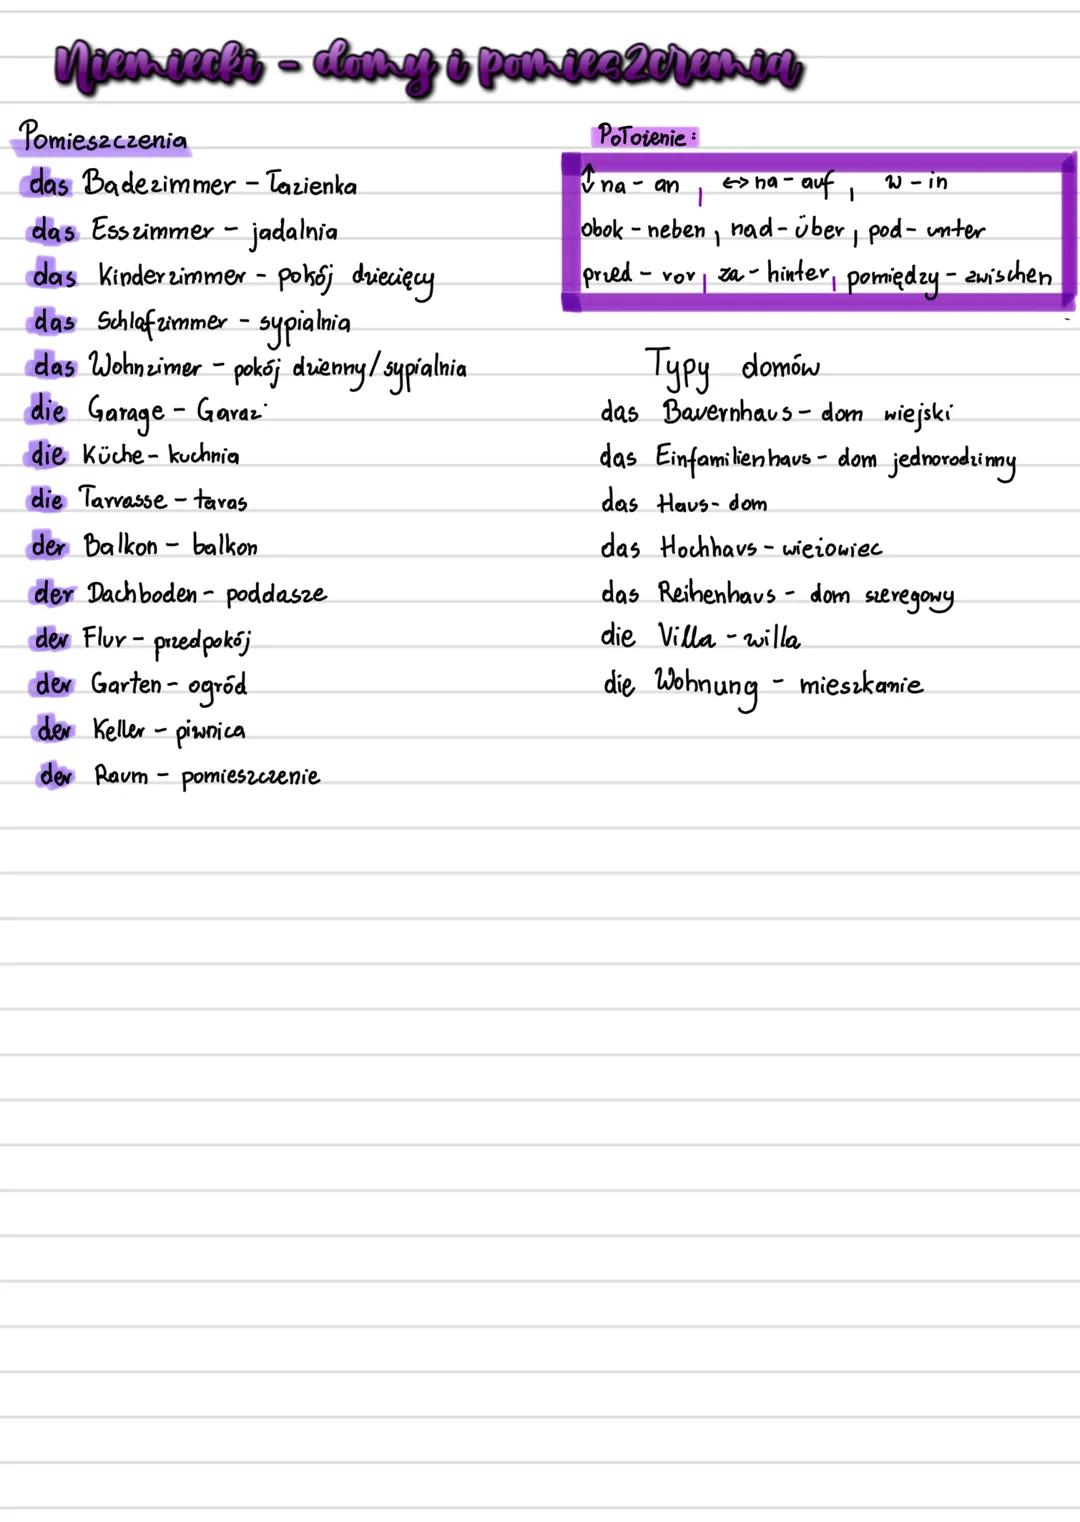 Niemiecki - domy i pomieszczenia
Pomieszczenia
das Badezimmer - Łazienka
das Esszimmer - jadalnia
das Kinderzimmer - pokój dziecięcy
das Schlafzimmer - sypialnia
das Wohnzimer - pokój dzienny/sypialnia
die Garage - Garaż
die Küche - kuchnia
die Tarrasse - taras
der Balkon - balkon
der Dachboden - poddasze
der Flur - przedpokój
der Garten - ogród
der Keller - piwnica
der Raum - pomieszczenie
Położenie:
↕ na - an, ↔ na - auf, w - in
obok - neben, nad - über, pod - unter
przed - vor, za - hinter, pomiędzy - zwischen
Typy domów
das Bauernhaus - dom wiejski
das Einfamilienhaus - dom jednorodzinny
das Haus - dom
das Hochhaus - wieżowiec
das Reihenhaus - dom szeregowy
die Villa - willa
die Wohnung - mieszkanie